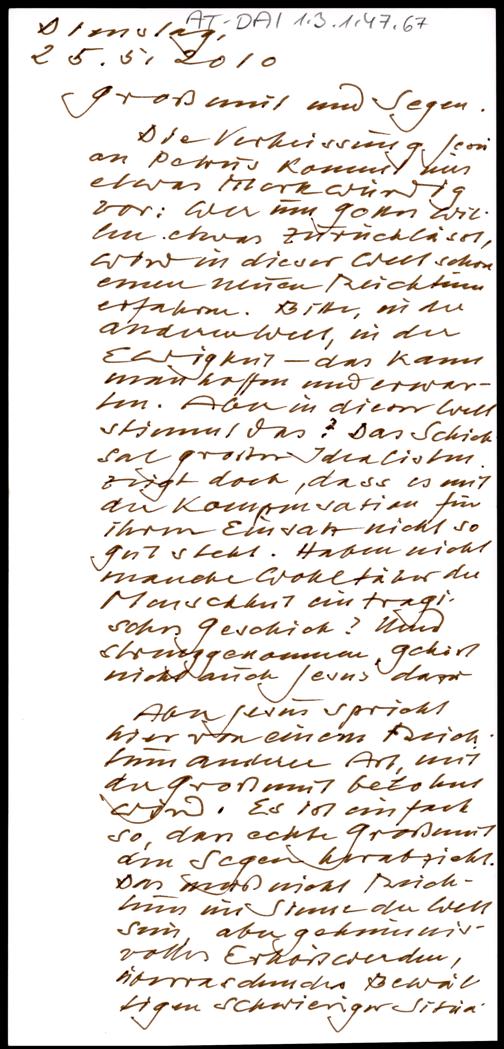 AT-DAI 1.3.1.47.67
Dienstag,
25.5.2010
Großmut und Segen.
Die Verheissung Jesu
an Petrus kommt uns
etwas Merkwürdig
vor: Wer um Gottes Wil-
len etwas zurücklässt,
wird in dieser Welt schon
einen neuen Reichtum
erfahren. Bitte, in der
anderen Welt, in der
Ewigkeit – das kann
man hoffen und erwar-
ten. Aber in dieser Welt
stimmt das? Das Schick
sal grosser Idealisten
zeigt doch, dass es mit
der Kompensation für
ihren Einsatz nicht so
gut steht. Haben nicht
manche Wohltäter der
Menschheit ein tragi-
sches Geschick? Und
strenggenommen, gehört
nicht auch Jesus dazu
Aber Jesus spricht
hier von einem Reich-
tum anderer Art, mit
der Großmut belohnt
wird. Es ist einfach
so, dass echte Großmut
den Segen herabzieht.
Das muß nicht Reich-
tum im Sinne der Welt
sein, aber geheimnis-
volles Erhörtwerden,
überraschendes Bewäl
tigen schwieriger Situa